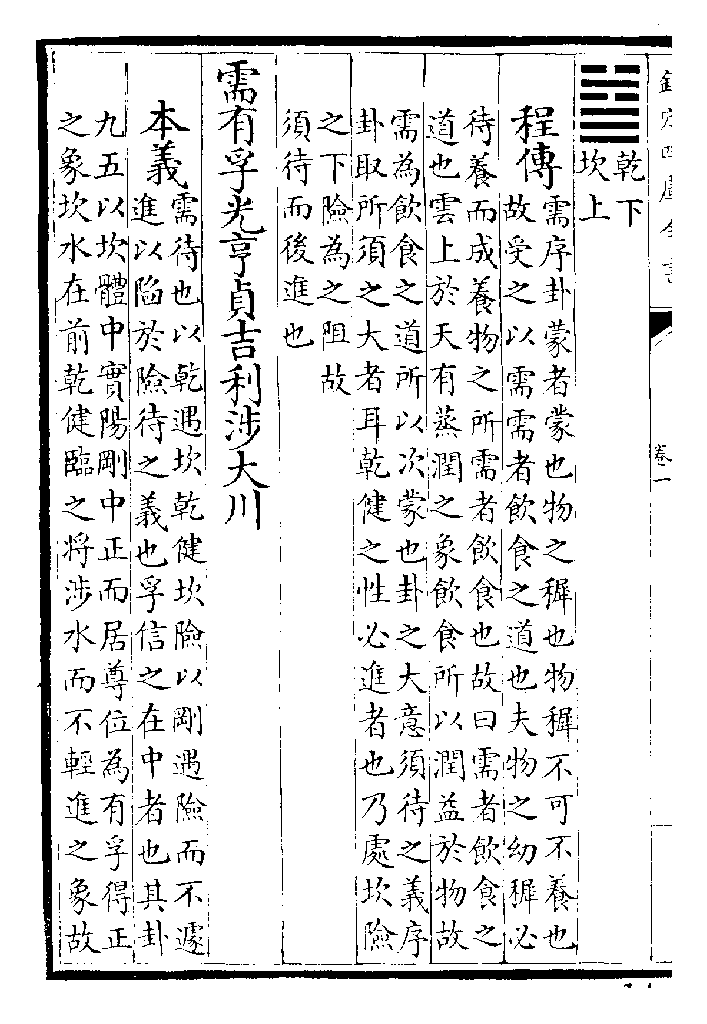 欽定四庫全書
卷一
乾下
坎上
程傳需序卦蒙者蒙也物之穉也物穉不可不養也
故受之以需需者飲食之道也夫物之幼穉必
待養而成養物之所需者飲食也故曰需者飲食之
道也雲上於天有蒸潤之象飲食所以潤益於物故
需為飲食之道所以次蒙也卦之大意須待之義序
卦取所須之大者耳乾健之性必進者也乃處坎險
之下險為之阻故
須待而後進也
需有孚光亨貞吉利涉大川
本義需待也以乾遇坎乾健坎險以剛遇險而不遽
進以陷於險待之義也孚信之在中者也其卦
九五以坎體中實陽剛中正而居尊位為有孚得正
之象坎水在前乾健臨之將涉水而不輕進之象故